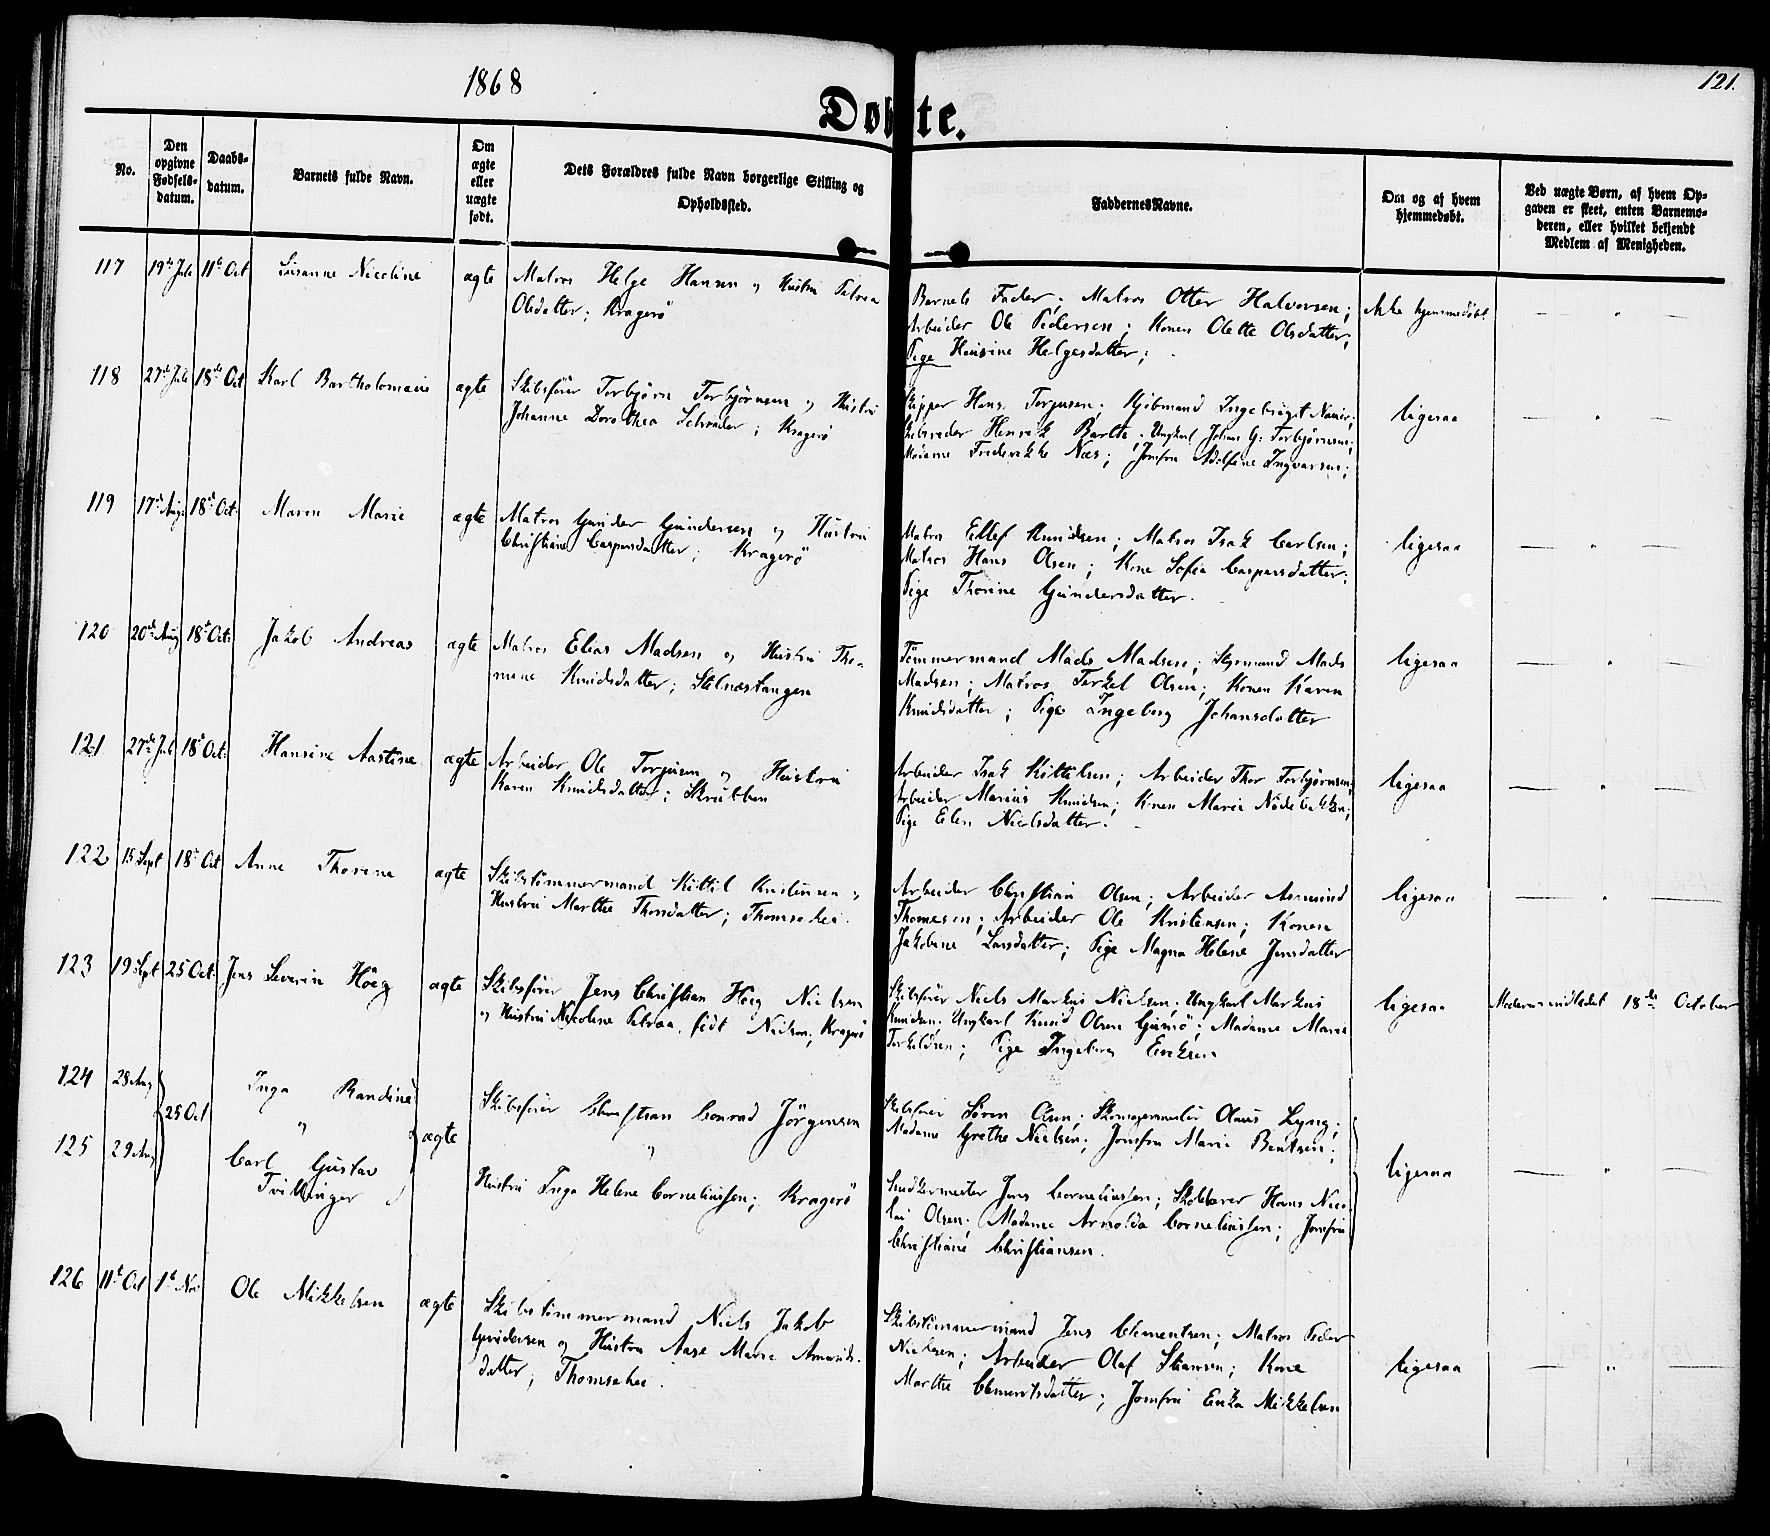 1868
121.
Døbte.
No.
Den
opgivne
Fødsels-
datum.
Daabs-
datum.
Barnets fulde Navn.
Om
ægte
eller
uægte
født.
Dets Forældres fulde Navn borgerlige Stilling og
Opholdssted.
Faddernes Navne.
Om og af hvem
hjemmedøbt.
Ved uægte Børn, af hvem Op-
gaven er skeet, enten Barnemo-
deren, eller hvilket bekjendt
Medlem af Menigheden.
117 19de Juli 11te Oct Susanne Nicoline ægte
Matros Helge Hansen og Hustru Petrea
Olsdatter; Kragerö
Barnets Fader; Matros Otter Halvorsen;
Arbeider Ole Pedersen; Konen Olette Olsdatter;
Pige Hansine Helgesdatter;
Ikke hjemmedøbt — " —
118 27de Juli 18de Oct Karl Bartholomæus ægte
Skibsfører Torbjörn Torbjörnsen og Hustru
Johanne Dorothea Schrøder; Kragerö
Skipper Hans Torjusen; Kjöbmand Ingebrigt
Skibsreder Henrik Barthe. Ungkarl Johan G. Torbjörnsen;
Madame Frederikke Næs; Jomfru Adolfine Ingvarsen;
ligesaa — " —
119 17de Aug 18de Oct. Maren Marie ægte
Matros Gunder Gundersen og Hustru
Christiane Caspersdatter; Kragerö
Matros Ellef Knudsen; Matros Isak Carlsen;
Matros Hans Olsen; Kone Sofie Caspersdatter;
Pige Thorine Gundersdatter.
ligesaa — " —
120 20de Aug 18de Oct. Jakob Andreas ægte
Matros Elias Madsen og Hustru Tho-
mine Knudsdatter; Stelnæstangen
Tömmermand Mads Madsen; Styrmand Mads
Madsen; Matros Terkel Olsen; Konen Karen
Knudsdatter; Pige Ingeborg Johansdatter
ligesaa — " —
121 27de Juli 18de Oct. Hansine Aastine ægte
Arbeider Ole Torjusen og Hustru
Karen Knudsdatter; Skrubben
Arbeider Isak Kittilsen; Arbeider Thor Torbjörnsen;
Arbeider Marius Knudsen; Konen Maria Nödebakken;
Pige Elen Nielsdatter.
ligesaa — " —
122 15 Sept 18de Oct Anne Thorine ægte
Skibstömmermand Kittil Kristensen og
Hustru Marthe Thorsdatter; Thomeshei.
Arbeider Christian Olsen; Arbeider Asmund
Thomesen; Arbeider Ole Kristensen; Konen
Jakobine Larsdatter; Pige Magna Helene Jensdatter
ligesaa — " —
123 19 Sept 25 Oct. Jens Severin Höeg ægte
Skibsfører Jens Christian Höeg Nielsen
og Hustru Nicoline Petrea, født Nielsen; Kragerö
Skibsfører Niels Markus Nielsen; Ungkarl Markus
Knudsen; Ungkarl Knud Olsen Gumö; Madame Maria
Terkelsen; Pige Ingeborg Eriksen
ligesaa Moderen indledet 18de October
124 28 Aug Inga Randine
25 Oct " ægte
125 29 Aug Carl Gustav
Tvillinger
Skibsfører Christian Conrad Jörgensen
"
Hustru Inga Helene Corneliussen; Kragerö
Skibsfører Sören Olsen; Skomagermester Olaus Lyng;
Madame Grethe Nielsen; Jomfru Marie Bentsen;
Snedkermester Jens Corneliussen; Skolelærer Hans Nico-
lai Olsen; Madame Arnolda Corneliussen; Jomfru
Christiane Christiansen.
ligesaa — " —
126 11te Oct 1te Nov Ole Mikkelsen ægte
Skibstömmermand Niels Jakob
Gundersen og Hustru Aase Marie Amunds-
datter; Thomeshei.
Skibstömmermand Jens Clementsen; Matros Peder
Nielsen; Arbeider Olaf Stiansen; Kone
Marthe Clementsdatter; Jomfru Erika Mikkelsen
ligesaa — " —